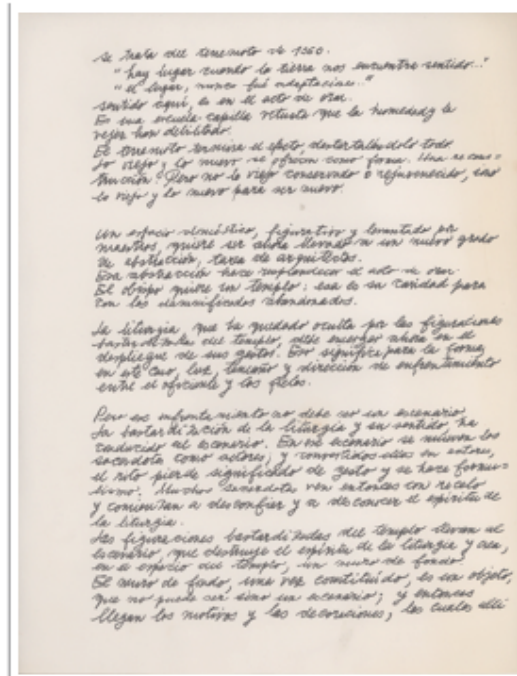 se trata del terremoto de 1960.
"hay lugar cuando la tierra nos encuentra sentido..."
"el lugar, nunca fué adaptación..."
sentido aquí, es en el acto de orar.
Es una escuela capilla vetusta que la humedad y la
vejez han debilitado.
El terremoto termina el efecto, destartalándolo todo.
Lo viejo y lo nuevo se ofrecen como forma. Una re cons-
trucción. Pero no lo viejo conservado o rejuvenecido, sino
lo viejo y lo nuevo para ser nuevo.
Un espacio doméstico, figurativo y levantado por
maestros, quiere ser ahora llevado a un nuevo grado
de abstracción, tarea de arquitectos.
Esa abstracción hace resplandecer el acto de orar.
El obispo quiere un templo: esa es su caridad para
con los damnificados abandonados.
La liturgia, que ha quedado oculta por las figuraciones
bastardeadas del templo, debe emerger ahora en el
despliegue de sus gestos. Eso significa para la forma,
en este caso, luz, tamaño y dirección de enfrentamiento
entre el oficiante y los fieles.
Pero ese enfrentamiento no debe ser un escenario.
La bastardización de la liturgia y su sentido, ha
conducido al escenario. En ese escenario se mueven los
sacerdotes como actores; y convertidos ellos en actores,
el rito pierde significado de gesto y se hace formu-
lismo. Muchos sacerdotes ven entonces con recelo
y comienzan a desconfiar y a desconocer el espíritu de
la liturgia.
Las figuraciones bastardizadas del templo llevan al
escenario, que destruye el espíritu de la liturgia y crea,
en el espacio del templo, un muro de fondo.
El muro de fondo, una vez constituido, es un objeto,
que no puede ser sino un escenario; y entonces
llegan los motivos y las decoraciones; los cuales allí